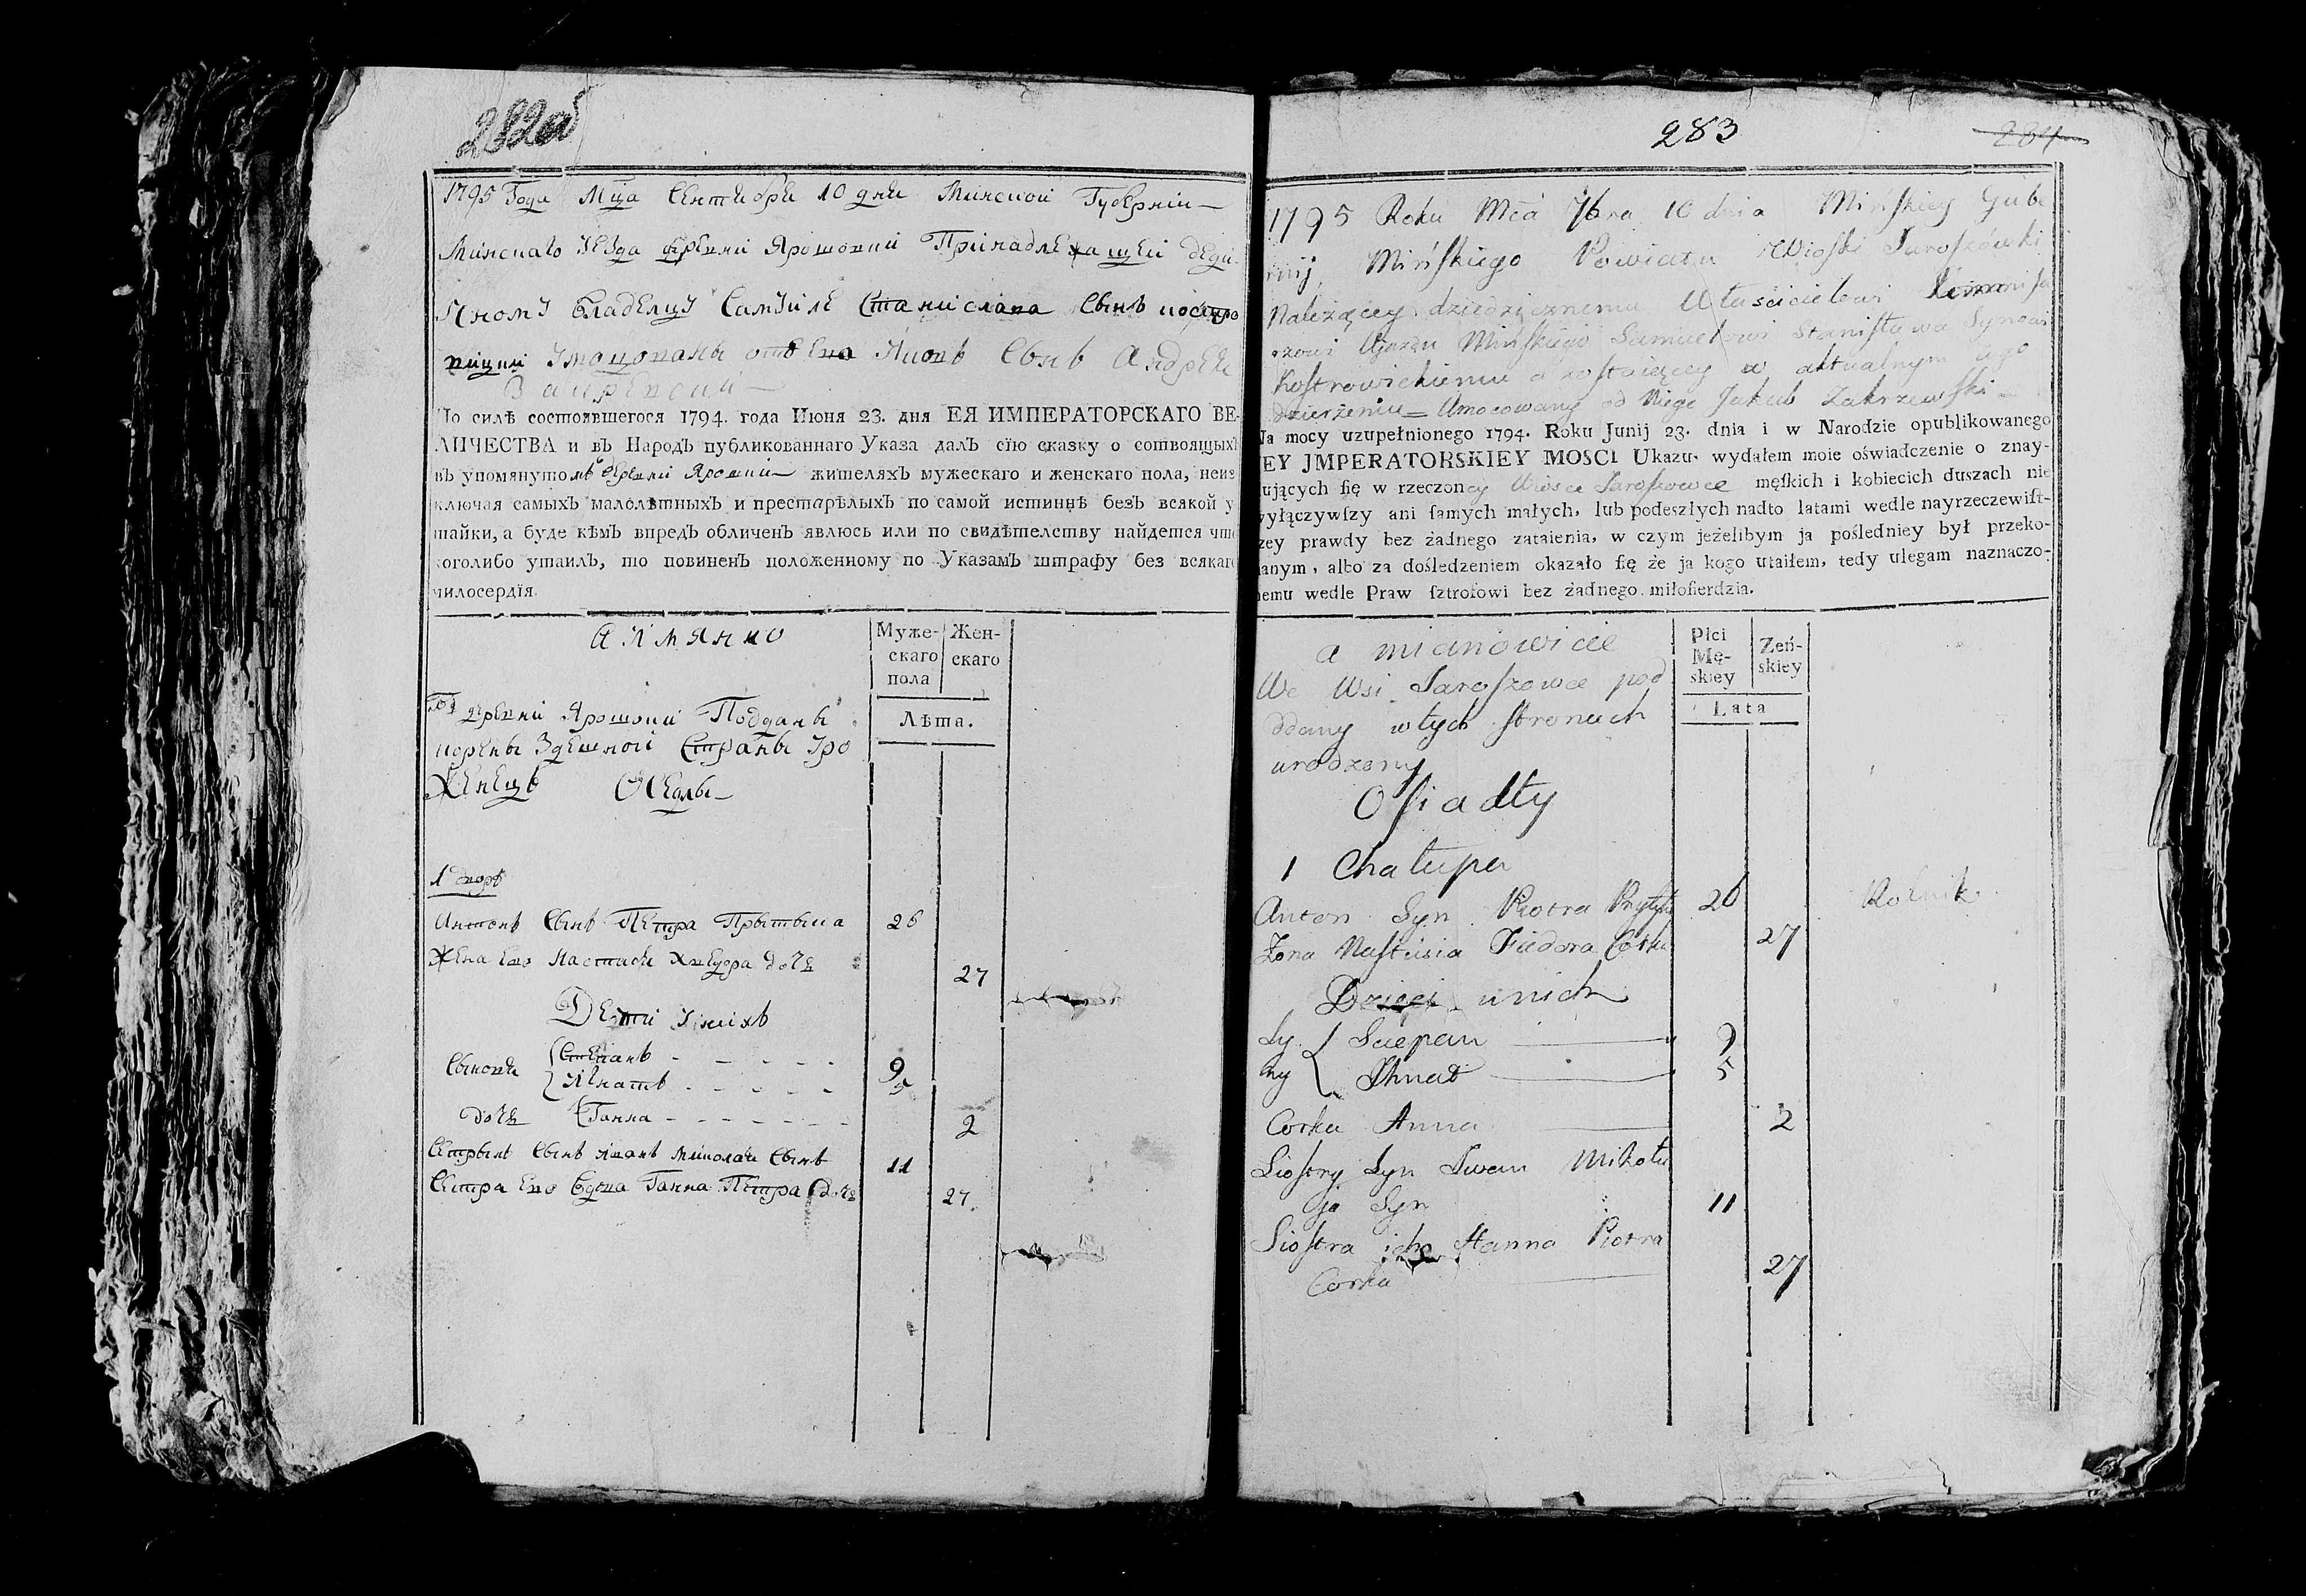 282об
1795 Года Мца Сентября 10 дня Минской Губернiи
Минскаго уезда деревни Ярошовки Принадлежащей деди
чному владелцу Самуиле Станислава Сынъ костро
вицки умоцованы отъ ево Яковъ Сынъ Андрея
Закревски
По силѣ состоявшегося 1794. года Июня 23. дня ЕЯ ИМПЕРАТОРСКАГО ВЕ-
ЛИЧЕСТВА и въ Народъ публикованнаго Указа далъ сїю сказку о сотвоящыхъ
въ упомянутомъ деревни Ярошки жителяхъ мужескаго и женскаго пола, неиз
ключая самыхъ малолѣтныхъ и престарѣлыхъ по самой истиннѣ безъ всякой у
тайки, а буде кѣмъ впредь обличенъ явлюсь или по свидѣтелству найдется что
коголибо утаилъ, то повиненъ положенному по Указамъ штрафу без всякаго
милосердїя.
а имянно
Муже-
скаго
пола
Жен-
скаго
Лѣта.
деревни Ярошки Подданы
корены здешной Страны уро
женецъ Оседлы
1 дворъ
Антонъ Сынъ Петра Прытыка 26
Жена ево Настася Хведора дочь 27
Дети у нихъ
Сыновя Степанъ 9
Игнатъ 5
дочь Ганна 2
Сестрынъ Сынъ Иванъ Миколаи Сынъ 11
Сестра ево вдова Ганна Петра дочь 27
283
284
1795 Roku Mca 7bra 10 dnia Mińskiey Gube
rnij Mińskiego Powiatu Wioski Jaroszówki
Należącey dziedzicznemu Właścicielowi
Ujazdu Mińskiego Samuelowi Stanisława Synowi
Kostrowickiemu a zostaiącey w aktualnym iego
dzierżeniu = Umocowany od Niego Jakub Zakrzewski
Na mocy uzupełnionego 1794. Roku Junij 23. dnia i w Narodzie opublikowanego
JEY JMPERATORSKIEY MOSCI Ukazu, wydałem moie oświadczenie o znay-
dujących ſię w rzeczoney Wiosce Jaroszowce męſkich i kobiecich duszach nie
wyłączywſzy ani ſamych małych, lub podeszłych nadto latami wedle nayrzeczewiſt-
szey prawdy bez żadnego zataienia, w czym jeżelibym ja pośledniey był przeko-
nanym, albo za dośledzeniem okazało ſię że ja kogo utaiłem, tedy ulegam naznaczo-
nemu wedle Praw ſztrofowi bez żadnego miłoſierdzia.
a mianowicie
Płci
Mę-
skiey
Zeń-
skiey
Lata
We Wsi Jaroszowce pod
ddany w tych stronach
urodzony
Osiadły
1 Chałupa
Anton Syn Piotra Prytyka 26 Rolnik
Zona Nastusia Fiedora Corka 27
Dzieci u nich
Sy Sciepan 9
ny Ihnat 5
Corka Anna 2
Siostry Syn Iwan Mikoła
ja Syn 11
Siostra ich Hanna Piotra
Corka 27